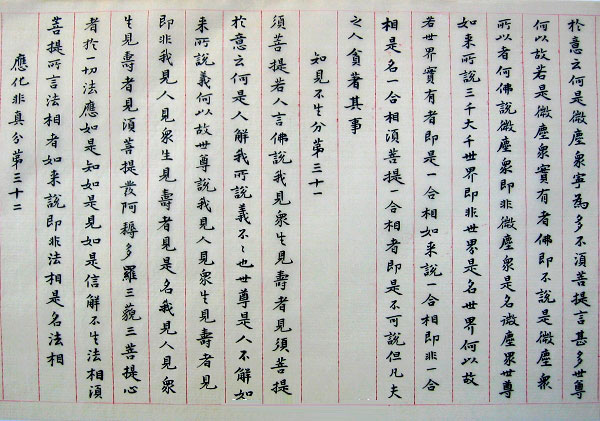 於意云何是微塵衆寧為多不須菩提言甚多世尊
何以故若是微塵衆實有者佛即不說是微塵衆
所以者何佛說微塵衆即非微塵衆是名微塵衆世尊
如来所說三千大千世界即非世界是名世界何以故
若世界實有者即是一合相如来說一合相即非一合
相是名一合相須菩提一合相者即是不可說但凡夫
之人貪著其事
知見不生分苐三十一
須菩提若人言佛說我見衆生見壽者見須菩提
於意云何是人解我所說義不々也世尊是人不解如
来所說義何以故世尊說我見人見衆生見壽者見
即非我見人見衆生見壽者見是名我見人見衆
生見壽者見須菩提發阿耨多羅三藐三菩提心
者於一切法應如是知如是見如是信解不生法相須
菩提所言法相者如来說即非法相是名法相
應化非真分苐三十二